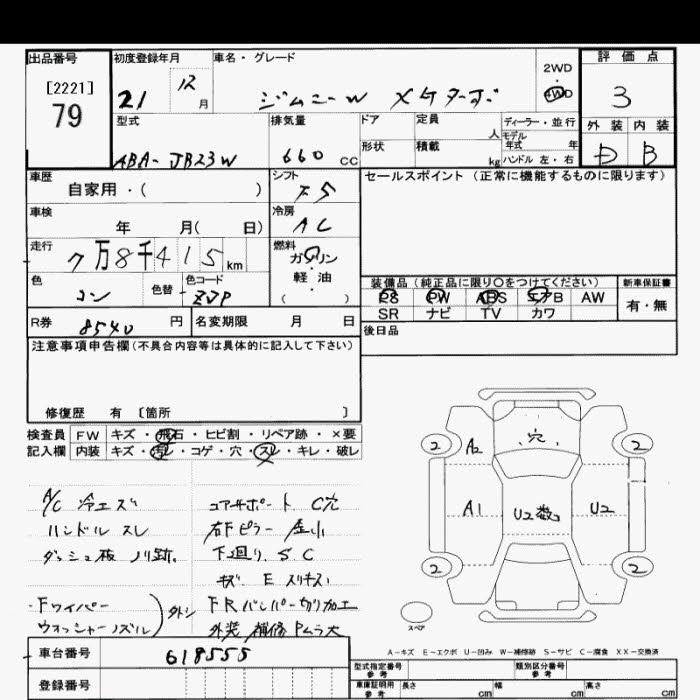 出品番号
[2221]
79
初度登録年月
21 12月
車名・グレード
ジムニーW メケターボ
2WD
4WD
評価点
3
外装 内装
D B
型式
ABA-JB23W
排気量
660 CC
ドア 定員 人
形状 積載 kg
ディーラー・並行
モデル年式 年
ハンドル 左・右
車歴
自家用・( )
シフト
F5
車検
年 月( 日)
冷房
AC
走行
7万8千415km
燃料
ガソリン
・
軽油
・
( )
色
コン
色替
色コード
ZJP
R券 8540 円
名変期限 月 日
セールスポイント (正常に機能するものに限ります)
装備品 (純正品に限り○をつけてください)
PS PW ABS エアB AW
SR ナビ TV カワ
新車保証書
有・無
後日品
注意事項申告欄(不具合内容等は具体的に記入して下さい)
修復歴 有 〔箇所 〕
検査員 FW キズ・飛石・ヒビ割・リペア跡・×要
記入欄 内装 キズ・汚レ・コゲ・穴・スレ・キレ・破レ
A/C 冷エズ
ハンドル スレ
ダッシュ板 ノリ跡.
・Fワイパー
ウオッシャーノズル
外シ
コアサポート C穴
右Fピラー 凹小
下廻り. S C
キズ E スリキズ
FRバンパー切り加工
外装 補修 Pムラ大
2 A2 穴 2
A1 U2数 U2
2 2
スペア
A-キズ E-エクボ U-凹み W-補修跡 S-サビ C-腐食 XX-交換済
車台番号
618555
登録番号
型式指定番号
参考
類別区分番号
参考
車庫証明用
参考
長さ cm 幅 cm 高さ cm